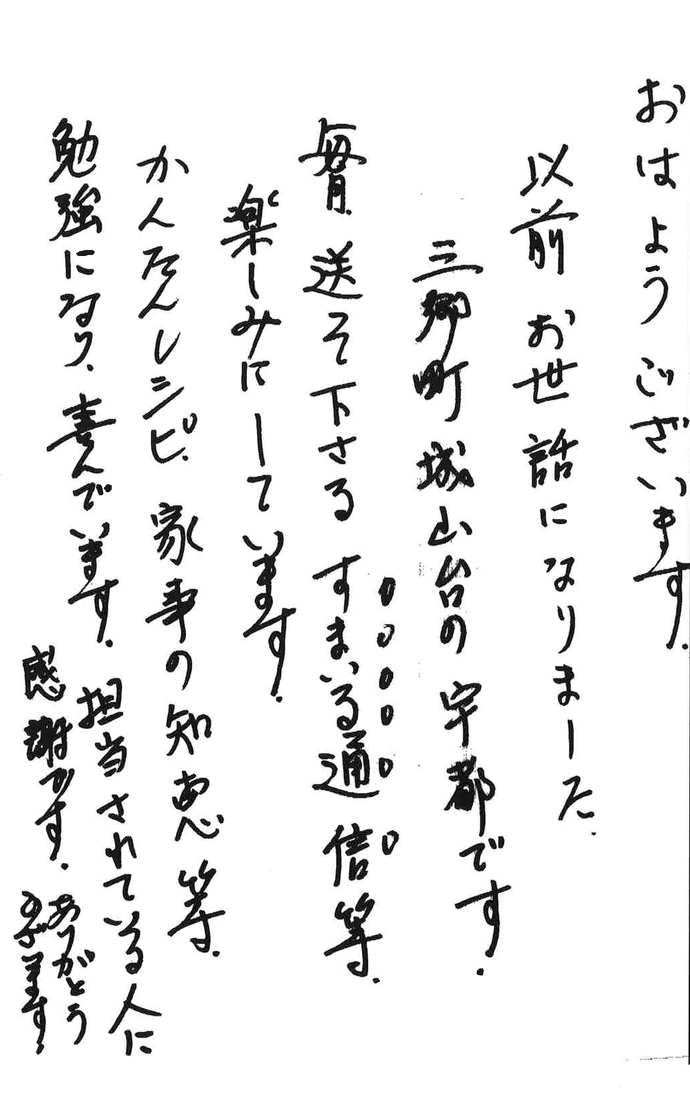 おはようございます.
以前お世話になりました.
三郷町城山台の宇都です.
毎月.送って下さるすまいる通信等.
楽しみにしています.
かんたんレシピ.家事の知恵等.
勉強になり、喜んでいます.
担当されている人に
感謝です.
ありがとう
ございます.